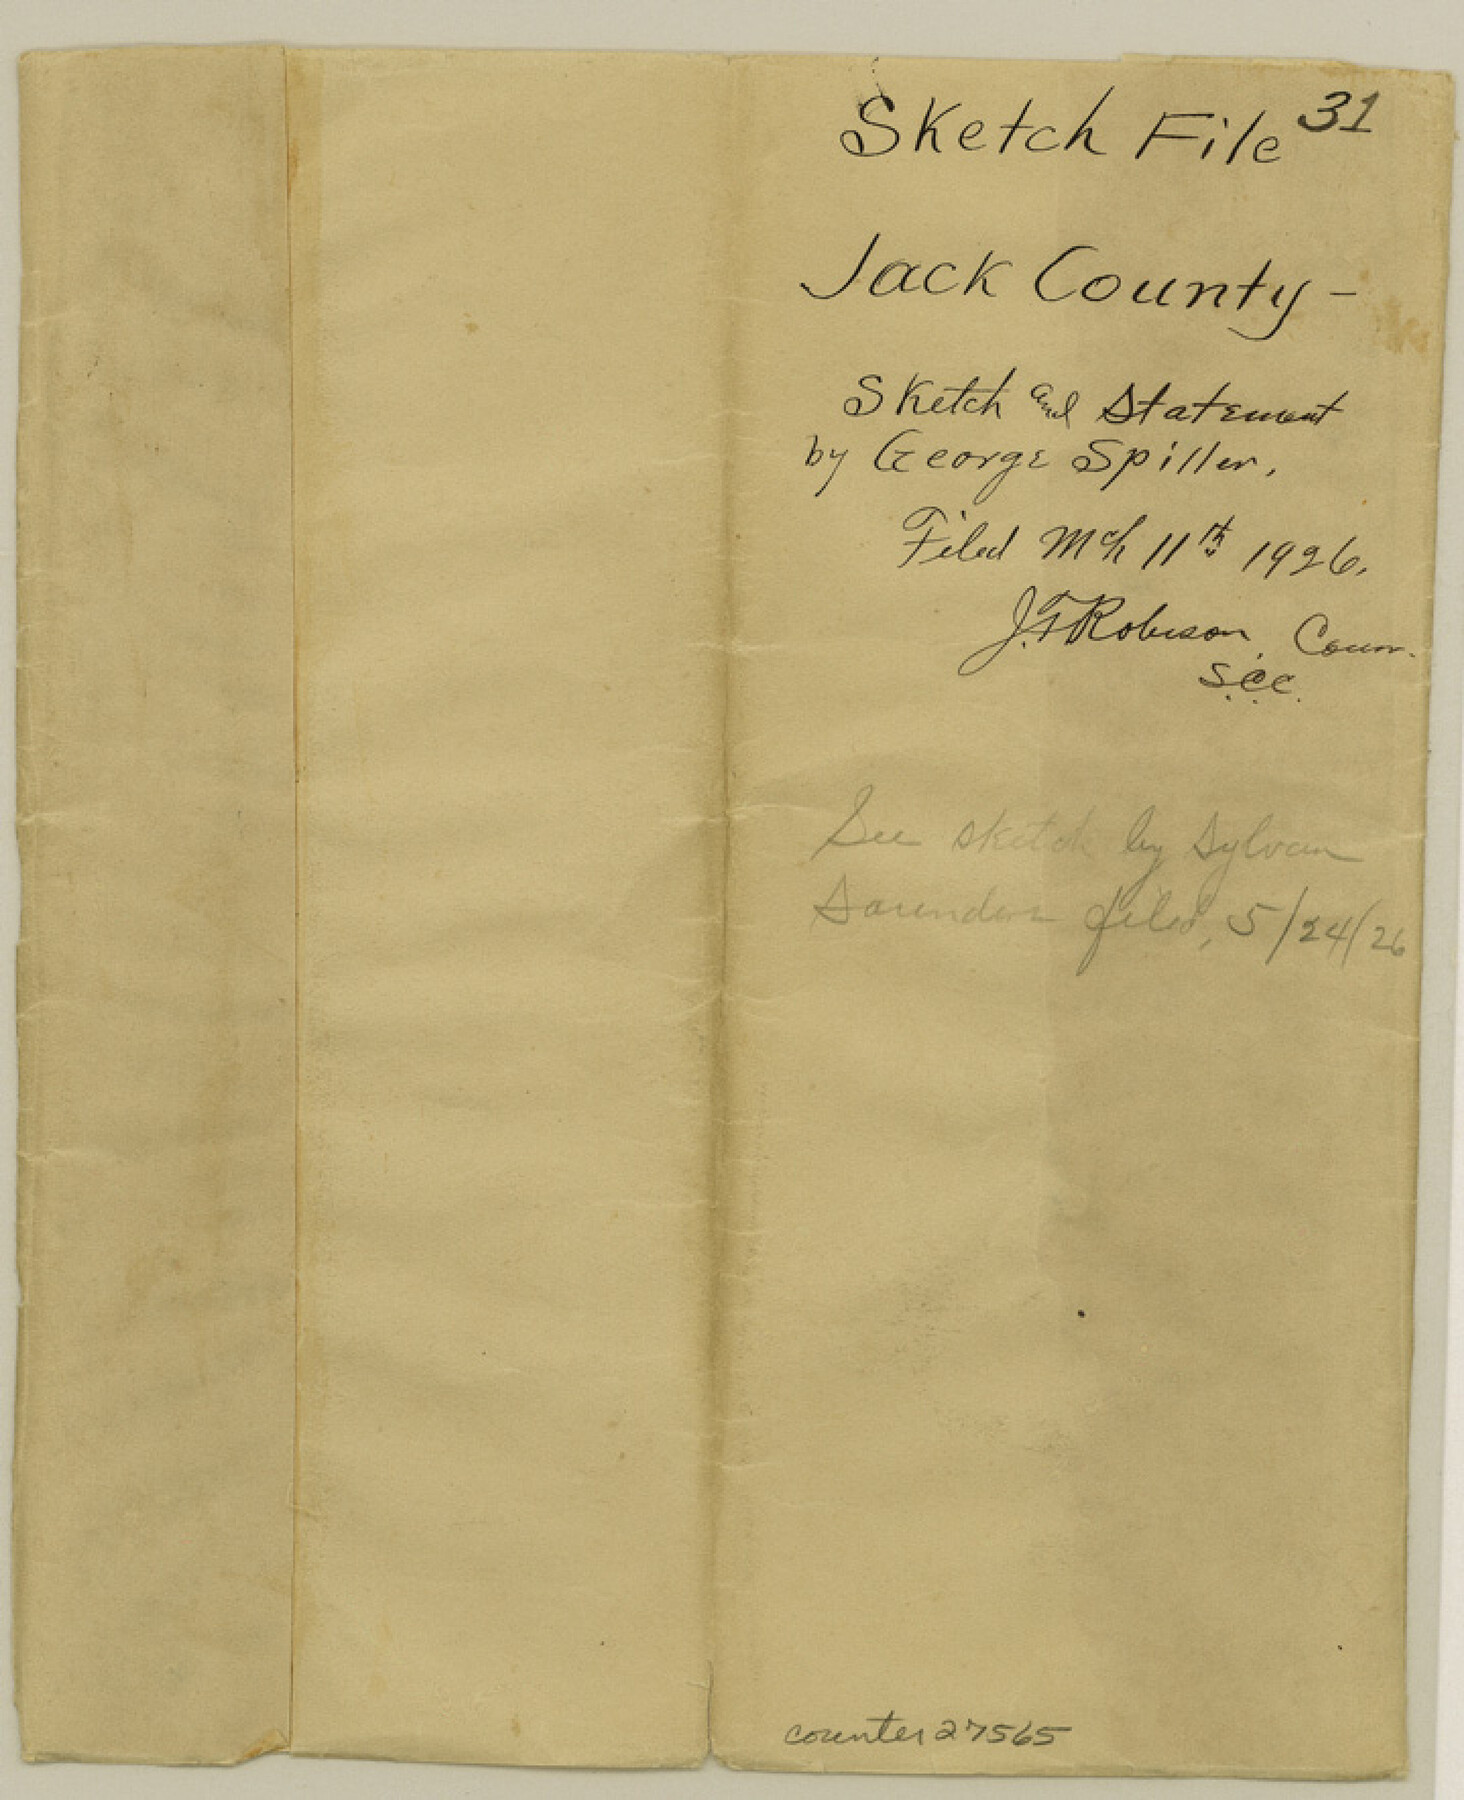 Sketch File 31
Jack County -
Sketch and Statement
by George Spiller,
Filed Mch 11th 1926.
J.T. Robison, Comr.
See sketch by Sylvan
Saunders filed, 5/24/26
counter 27565